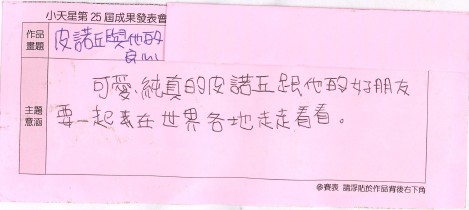 小天星第25屆成果發表會
作品
畫題
皮諾丘與他的
主題
意涵
可愛、純真的皮諾丘跟他的好朋友
要一起去在世界各地走走看看。
參賽表 請浮貼於作品背後右下角